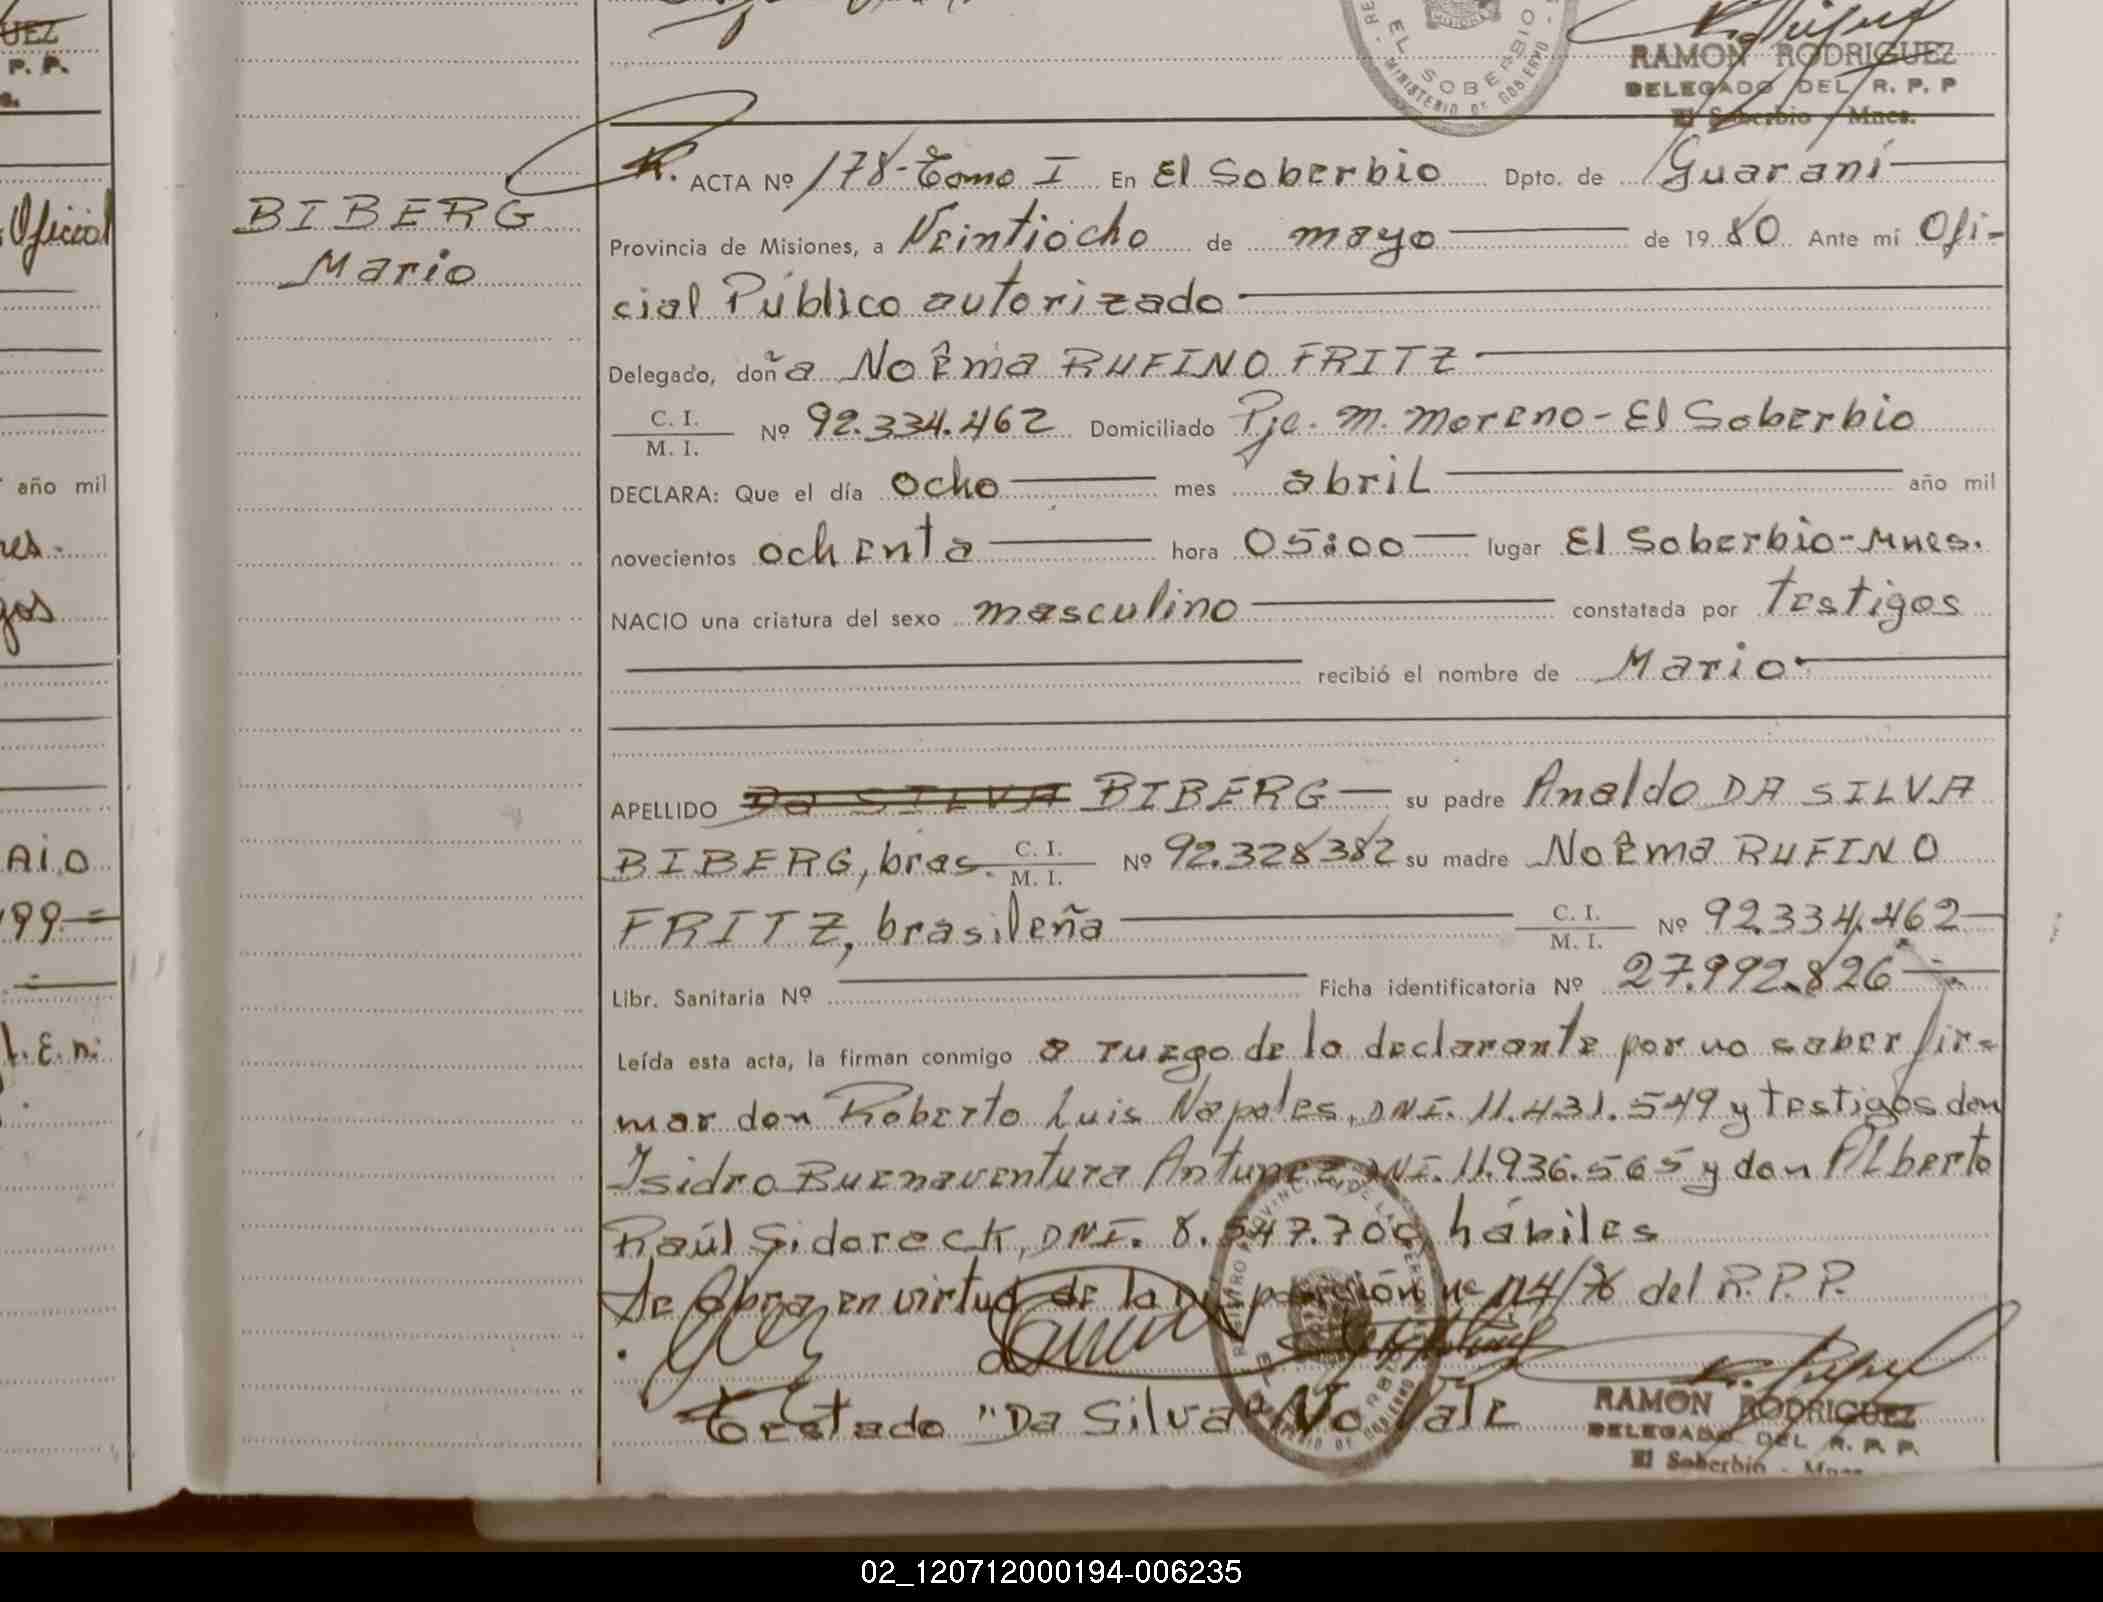 UEZ
P. P.
Oficial
año mil
res.
gos
AI.O
199.=
L.E.n:
BIBERG
Mario
EL SOBERBIO
MINISTERIO DE GOBIERNO
RAMON RODRIGUEZ
DELEGADO DEL R. P. P
El Soberbio - Mnes.
R. ACTA Nº 178-Tomo I En El Soberbio Dpto. de Guaraní
Provincia de Misiones, a Veintiocho de mayo de 1980 Ante mí Ofi-
cial Público autorizado
Delegado, doña Noêma RUFINO FRITZ
C. I.
M. I. Nº 92.334.462 Domiciliado Pje. M. Moreno - El Soberbio
DECLARA: Que el día ocho mes abril año mil
novecientos ochenta hora 05:00 lugar El Soberbio-Mnes.
NACIO una criatura del sexo masculino constatada por testigos
recibió el nombre de Mario
APELLIDO Da SILVA BIBERG su padre Analdo DA SILVA
BIBERG, bras. C. I. M. I. Nº 92.328382 su madre Noêma RUFINO
FRITZ, brasileña C. I. M. I. Nº 92.334.462
Libr. Sanitaria Nº Ficha identificatoria Nº 27.992.826
Leída esta acta, la firman conmigo a ruego de la declarante por no saber fir=
mar don Roberto Luis Napoles, DNI. 11.431.549 y testigos don
Isidro Buenaventura Antunez DNI. 11.936.565 y don Alberto
Raúl Sidoreck, DNI. 8.547.700, hábiles
Se obra en virtud de la Disposición nº 114/76 del R.P.P.
Testado "Da Silva" No Vale
RAMON RODRIGUEZ
DELEGADO DEL R. P. P.
El Soberbio - Mnes
02_120712000194-006235